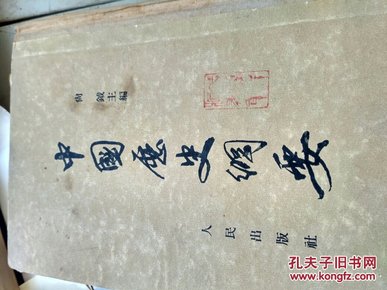 尚 鉞主編
中國歷史綱要
人民出版社
孔夫子旧书网
www.kongfz.com